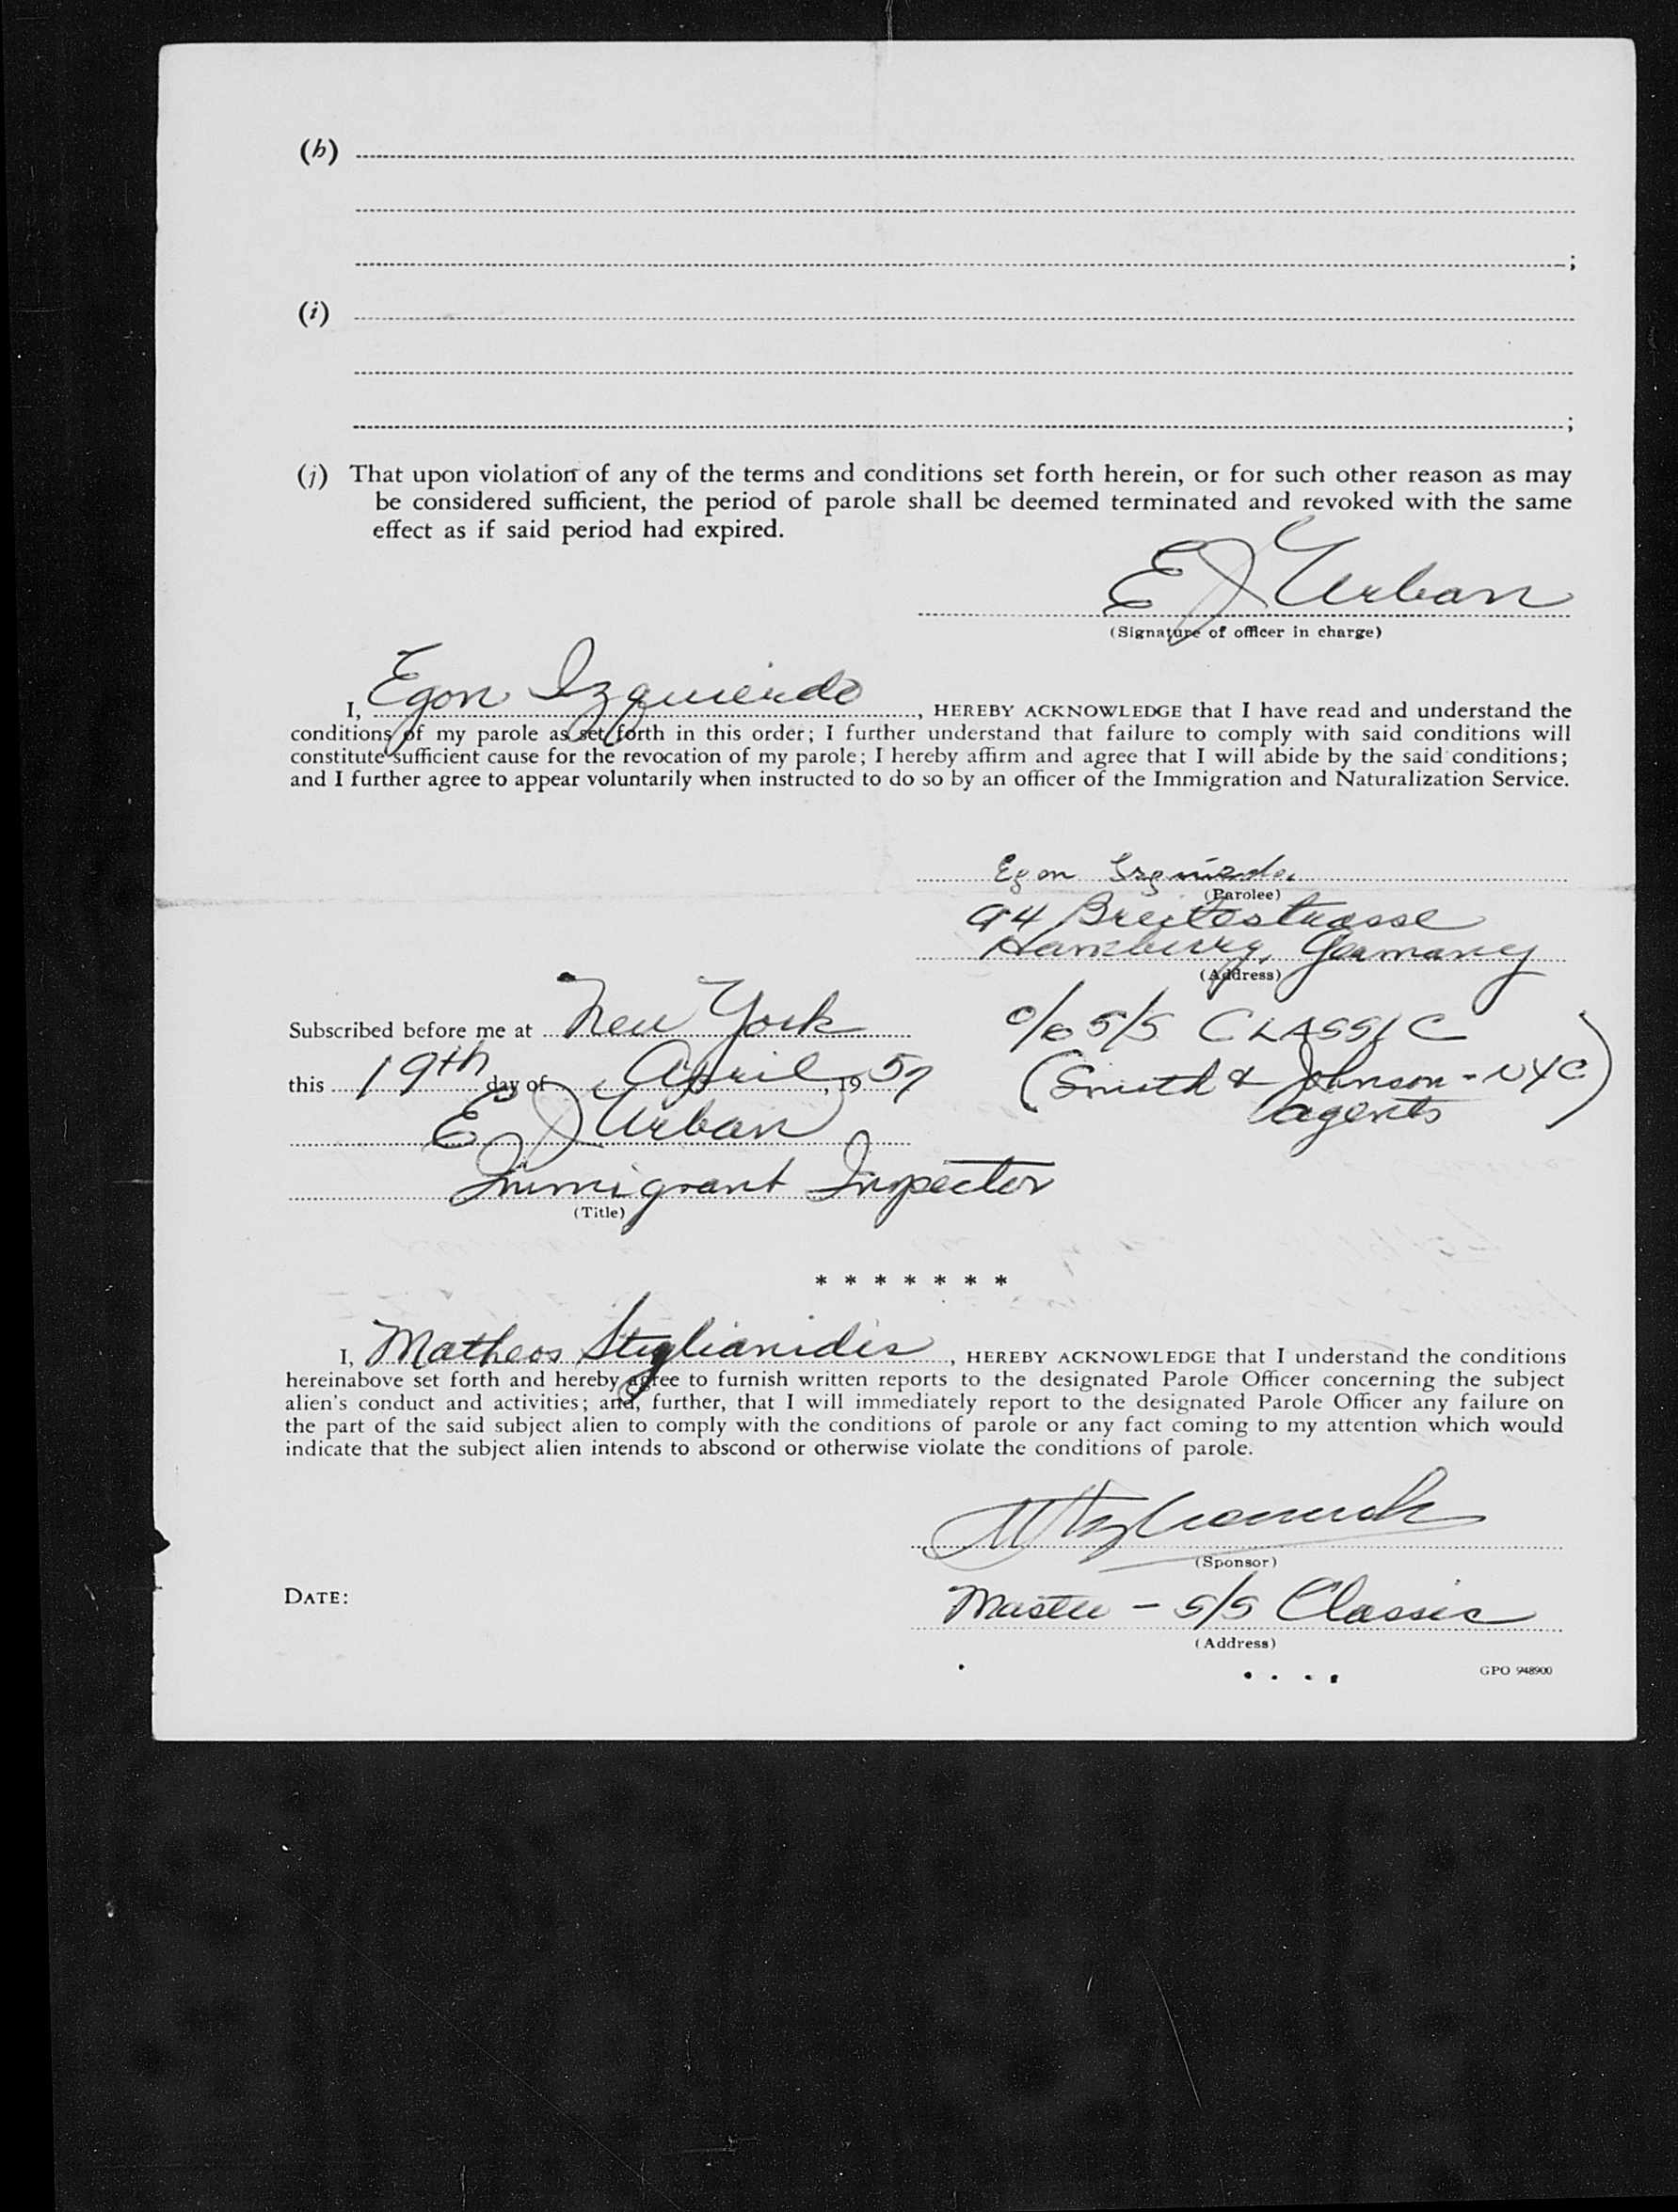 (h)
;
(i)
;
(j) That upon violation of any of the terms and conditions set forth herein, or for such other reason as may
be considered sufficient, the period of parole shall be deemed terminated and revoked with the same
effect as if said period had expired.
E J Urban
(Signature of officer in charge)
I, Egon Izquierdo, HEREBY ACKNOWLEDGE that I have read and understand the
conditions of my parole as set forth in this order; I further understand that failure to comply with said conditions will
constitute sufficient cause for the revocation of my parole; I hereby affirm and agree that I will abide by the said conditions;
and I further agree to appear voluntarily when instructed to do so by an officer of the Immigration and Naturalization Service.
Egon Izquierdo
(Parolee)
94 Breitestrasse
Hamburg, Germany
(Address)
Subscribed before me at New York
c/o S/S CLASSIC
this 19th day of April, 1957
(Smith & Johnson - NYC)
agents
E J Urban
Immigrant Inspector
(Title)
* * * * * * *
I, Matheos Styglianidis, HEREBY ACKNOWLEDGE that I understand the conditions
hereinabove set forth and hereby agree to furnish written reports to the designated Parole Officer concerning the subject
alien's conduct and activities; and, further, that I will immediately report to the designated Parole Officer any failure on
the part of the said subject alien to comply with the conditions of parole or any fact coming to my attention which would
indicate that the subject alien intends to abscond or otherwise violate the conditions of parole.
(Sponsor)
DATE:
Master - S/S Classic
(Address)
GPO 948900